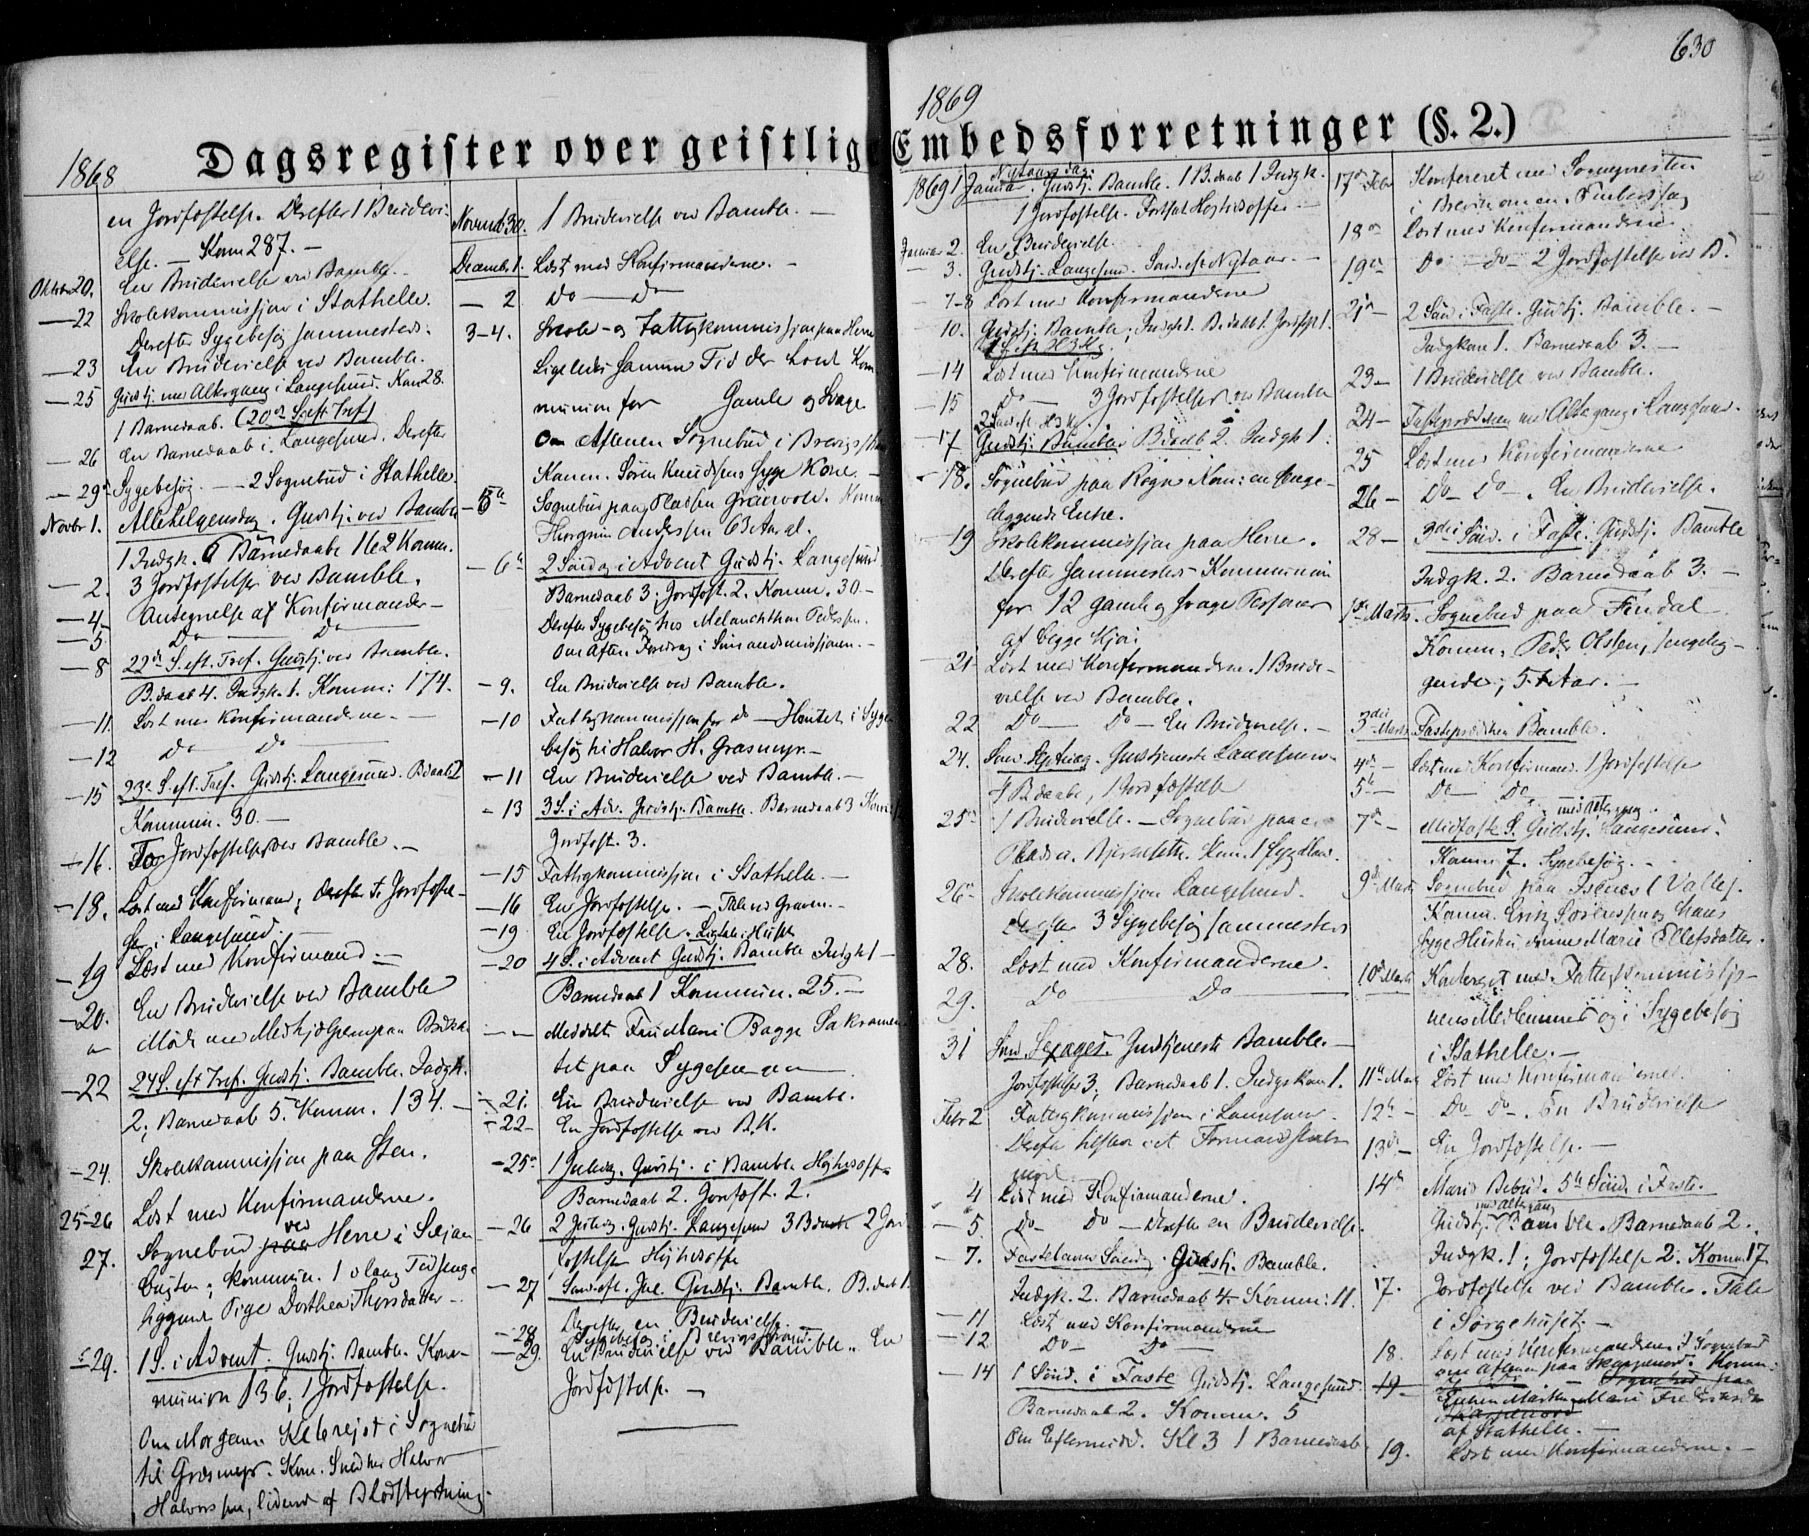 630
1869
Dagsregister over geistlige Embedsforretninger (§. 2.)
1868
en Jordfæstelse. Derefter 1 Brudevi-
else. — Kom 287. —
Oktober 20. En Brudevielse ved Bamble. —
— 22 Skolekommissjon i Stathelle.
Derefter Sygebesøg sammesteds.
— 23 En Brudevielse ved Bamble.
— 25 Gudstj. med Altergang i Langesund. Kom 28.
1 Barnedaab. (20de S. eft. Tref)
— 26 En Barnedaab i Langesund. Derefter
— 29 Sygebesøg. — 2 Sognebud i Stathelle
Novbr 1. Allehelgensdag. Gudstj. ved Bamble
1 Indgk. 6 Barnedaabe 162 Komm.
— 2. 3 Jordfæstelser ved Bamble.
— 4 Antegnelse af Konfirmander —
— 5 Do Do
— 8 22de S. eft. Tref. Gudstj. ved Bamble.
B.daab 4. Indgk. 1. Komm: 174.
— 11 Læst med Konfirmanderne. —
— 12 Do Do
— 15 23de S. eft. Tref. Gudstj. Langesund. Bdaab 2
Kommun. 30. —
— 16. To Jordfæstelser ved Bamble. —
— 18. Læst med Konfirmand; derefter Jordfæstel-
se i Langesund. —
— 19 Læst med Konfirmand. —
— 20. En Brudevielse ved Bamble
Møde med Medhjælperne paa
— 22 24 S. eft. Tref. Gudstj. Bamble. Indgk.
2; Barnedaab 5. Komm. 134. —
— 24. Skolekommissjon paa Sten.
25-26 Læst med Konfirmanderne.
27. Sognebud ved Herre i
kommun. 1 lang Tid senge-
liggende Pige Dorthea Thorsdatter. —
— 29. 1 S. i Advent. Gudstj. Bamble. Kom-
munion 136; 1 Jordfæstelse.
Om Morgenen Kl. 6 reist i Sognebud
til Grasmyr. Kom. Snedker Halvor
Halvorssen, lidende af Blodstyrtning.
Novemb 30. 1 Brudevielse ved Bamble. —
Decembr 1. Læst med Konfirmanderne. —
— 2 Do — Do
3-4. Skole- og Fattigkommissjon paa Herre
Ligeledes samme Tid der holdt Kom
munion for Gamle og Svage
Om Aftenen Sognebud i Brevigsstrand
Komm. Søren Knudssens syge Kone. —
— 5te Sognebud paa Pladsen Komm
Andersen 63 Aar gl.
— 6te 2 Søndag i Advent Gudstj. Langesund
Barnedaab 3; Jordfæst. 2. Komm. 30 —
Derefter Sygebesøg hos Melanchthon Pederssen.
Om Aften Foredrag i —
— 9. En Brudevielse ved Bamble.
— 10 Fattigkommissjon for do — Hentet i Syge
besøg til Halvor H. Grasmyr. —
— 11 En Brudevielse ved Bamble. —
— 13 3 S. i Adv. Gudstj. Bamble. Barnedaab 3
Jordfæst. 3.
— 15 Fattigkommissjon i Stathelle. —
— 16 En Jordfæstelse. — Tale ved Graven. —
— 19 En Jordfæstelse. Ligtale i Huset
— 20 4 S. i Advent Gudstj. Bamble Indgk 1 —
Barnedaab 1 Kommun. 25. —
— — Meddelt Fru Marie Bagge Sakramen
tet paa Sygesengen
— 21. En Brudevielse ved Bamble.
— 22 — En Jordfæstelse ved B.K.
— 25de 1 Juledag. Gudstj. i Bamble Høitidsoffer
Barnedaab 2. Jordfæst. 2.
— 26 2 Juledag. Gudstj. Langesund 3 Bdaab 2 Jord
fæstelser Høitidsoffer
— 27 Sønd. eft. Jul. Gudstj. Bamble. B.daab 1.
Derefter en Brudevielse.
— 28 Sygebesøg i Brevigsstrand.
— 29. En Brudevielse ved Bamble. En
Jordfæstelse. —
1869 1 Januar. Nytaarsdag. Gudstj. Bamble. 1 B.daab 1 Indgk.
1 Jordfæstelse. Fortsat Høitidsoffer
Januar 2. En Brudevielse.
— 3. Gudstj. Langesund. Sønd. eft Nytaar. —
— 7-8 Læst med Konfirmanderne
10. Gudstj. Bamble; Indgk 1. B.daab 1. Jordfæst 1.
1 S. eft. H3K.
— 14 Læst med Konfirmanderne
— 15 Do — 3 Jordfæstelser ved Bamble
2 S. eft. H3K.
— 17 Gudstj. Bamble Bdaab 2. Indgk 1.
— 18. Sognebud paa Rogn. Kom: en senge-
liggende Enke.
— 19 Skolekommissjon paa Herre.
Derefter sammesteds Kommunion
for 12 gamle og svage Personer
af begge Kjøn.
— 21 Læst med Konfirmanderne. 1 Brude-
vielse ved Bamble.
22 Do — Do — En Brudevielse. —
24. Sønd Septuag. Gudstjeneste Langesund.
4 B.daabe, 1 Jordfæstelse
25de 1 Brudevielse. — Sognebud paa
Pladsen Komm. 1
26de Skolekommissjon Langesund.
Derefter 3 Sygebesøg sammesteds
28. Læst med Konfirmanderne.
29. Do Do
31 Sønd Sexages. Gudstjeneste Bamble. —
Jordfæstelser 3; Barnedaab 1. Indgskon 1.
Febr 2 Fattigkommissjon i Langesund.
Derefter tilstede i et Formandskabs-
møde.
4 Læst med Konfirmanderne.
— 5. Do Do — Derefter en Brudevielse.
— 7. Fastelavns Søndag. Gudstj. Bamble.
Indgk. 2. Barnedaab 4. Komm: 11.
— 11 Læst med Konfirmanderne
— 12 Do — Do —
— 14 1 Sønd. i Faste Gudstj. Langesund.
Barnedaab 2. Komm. 5
Om Eftermidd. Kl 3 1 Barnedaab.
17de Febr Konfereret med Sognepresten
i Brevik om en
18de Læst med Konfirmanderne
19de Do — do — 2 Jordfæstelser ved B.
21de — 2 Sønd. i Faste. Gudstj. Bamble. —
Indgkone 1. Barnedaab 3. —
23 — 1 Brudevielse ved Bamble.
24 — Fasteprædiken med Altergang i Langesund.
25 Læst med Konfirmanderne
26 — Do — Do —. En Brudevielse.
28 — 3die Sønd. i Faste: Gudstj. Bamble
Indgk. 2. Barnedaab 3. —
1ste Marts. Sognebud paa Findal
Komm. Peder Olsen, sengelig-
gende;
3die Marts Fasteprædiken Bamble.
4de — Læst med Konfirmand. 1 Jordfæstelse
5te — Do — Do
7de — Midfaste S. Gudstj. med Altergang Langesund.
Komm 7. Sygebesøg. —
9de Marts Sognebud paa (Valle).
Komm. Erik Sørenssen og hans
syge Hustru Anne Marie Ellefsdatter.
10de Marts Konfereret med Fattigkommissjo-
nens Medlemmer og i Sygebesøg
i Stathelle. —
11te Marts Læst med Konfirmanderne.
12te — Do Do —. En Brudevielse
13de — En Jordfæstelse. —
14de Mariæ Bebud. 5te Sønd. i Faste.
Gudstj. med Altergang Bamble. Barnedaab 2.
Indgk. 1; Jordfæstelse 2. Komm 17
17. Jordfæstelse ved Bamble. Tale
i Sørgehuset. —
18. Læst med Konfirmanderne. I Sognebud
om Aftenen paa Skjøpenord. Komm:
19 — Do — Sognebud paa
Enken Marthe Marie
af Stathelle. —
19. Læst med Konfirmanderne. —